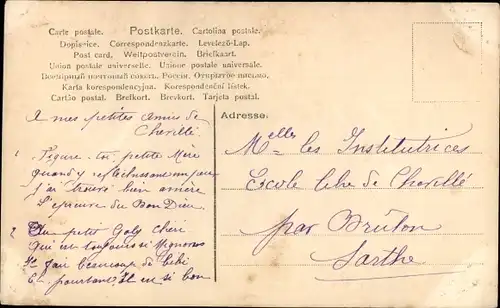 Carte postale. Postkarte. Cartolina postale.
Dopisnice. Correspondenzkarte. Levelező-Lap.
Post card. Weltpostverein. Briefkaart.
Union postale universelle. Unione postale universale.
Karta korespondencyjna. Korespondenční lístek.
Cartão postal. Brefkort. Brevkort. Tarjeta postal.
A mes petites amies de
Chevillé.
Figure-toi petite Mère
j'ai trouvé bien amère
L'épreuve du Bon Dieu
2 petit chéri
Qui est toujours si Mignon
beaucoup de
Et pourtant Il est si bon
Adresse:
Melles les Institutrices
Ecole libre de Chevillé
par Brûlon
Sarthe